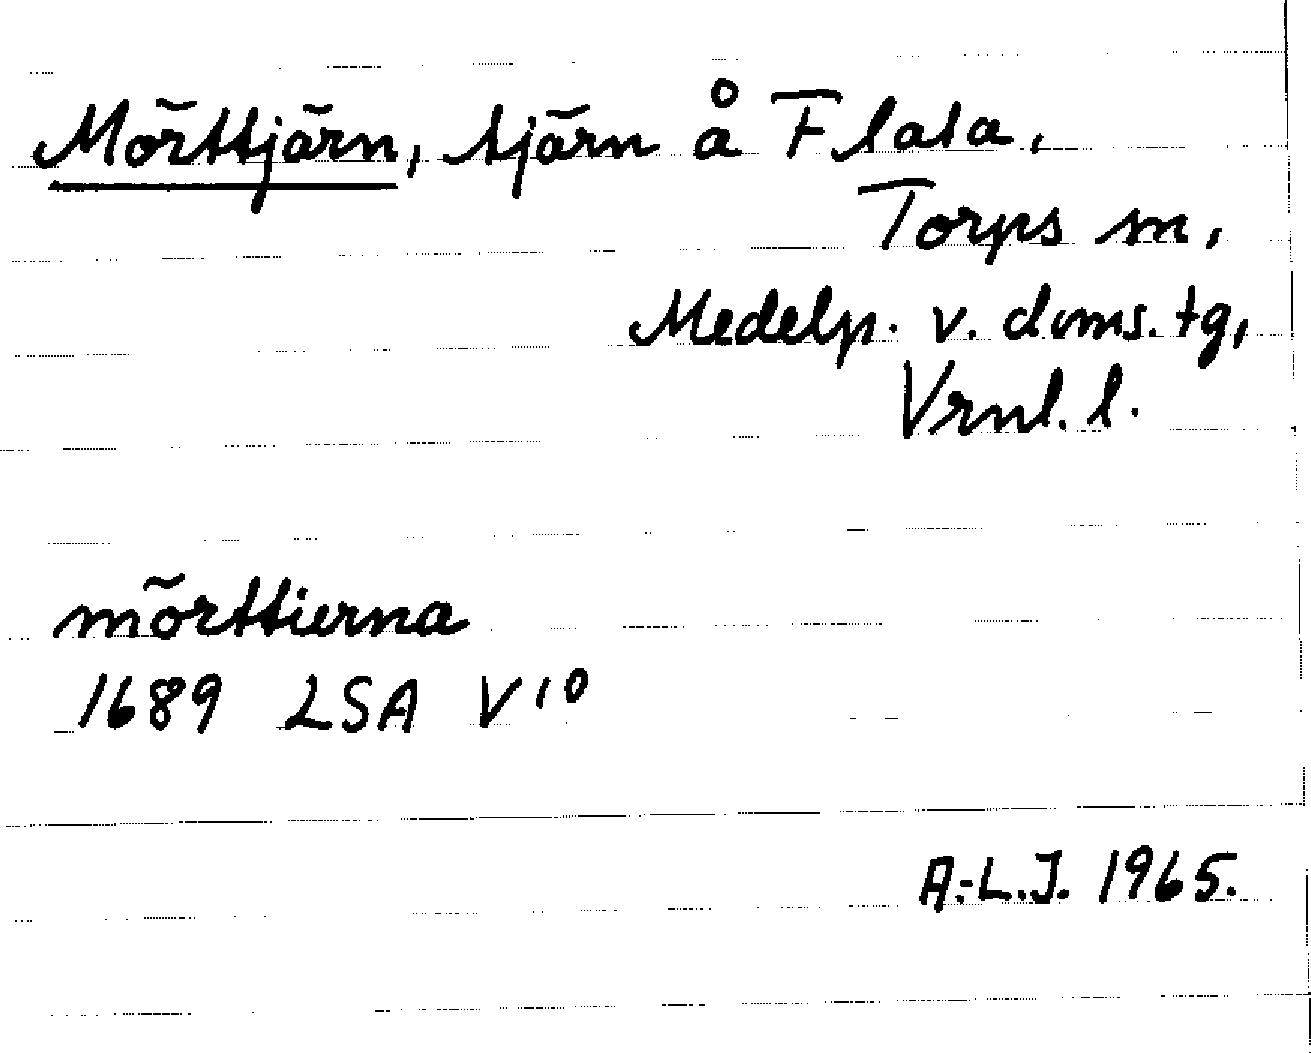 Mörttjärn, tjärn å Flata,
Torps sn,
Medelp. v. doms. tg,
Vrnl. l.
mörttierna
1689 LSA V 10
A.-L.J. 1965.